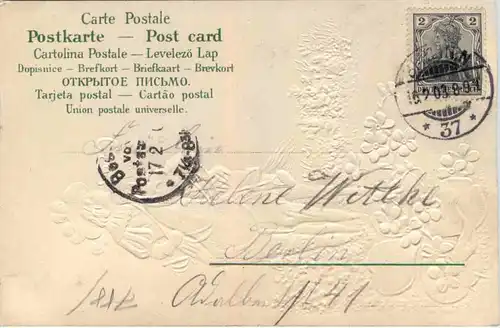 Carte Postale
Postkarte — Post card
Cartolina Postale — Levelező Lap
Dopisnice — Brefkort — Briefkaart — Brevkort
ОТКРЫТОЕ ПИСЬМО.
Tarjeta postal — Cartão postal
Union postale universelle.
2
2
* 37 *
17 2
Helene Wittke
Berlin
41